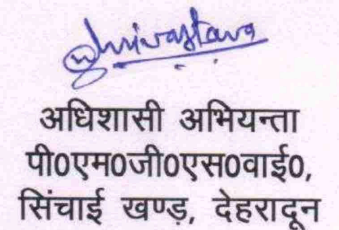 Shrivastava
अधिशासी अभियन्ता
पी0एम0जी0एस0वाई0,
सिंचाई खण्ड़, देहरादून